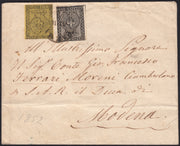 All' Illustrissimo Signore
Il Sig. Conte Gio. Francesco
Ferrari Moreni Ciambellano
di S.A.R. il Duca di
Modena
1852